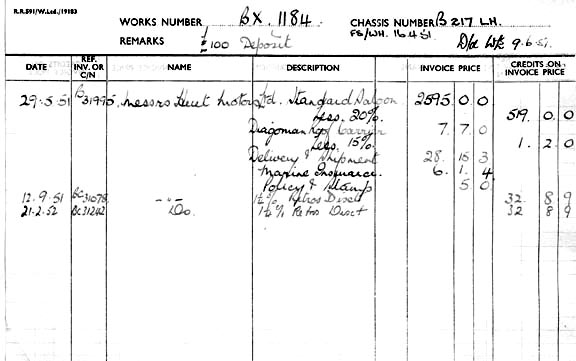 R.R.591/W.Ltd./19183
WORKS NUMBER BX. 1184 CHASSIS NUMBER B 217 LH.
REMARKS £100 Deposit FS/WH. 16.4.51 D/d W/E 9-6-51.
DATE REF. INV. OR C/N NAME DESCRIPTION INVOICE PRICE CREDITS ON INVOICE PRICE
29.5.51 B 31995 Messrs Motors Ltd. Standard Saloon 2595 0 0
Less 20% 519. 0. 0
Roof Carrier 7. 7. 0
Less 15% 1. 2. 0
Delivery & Shipment 28. 15 3
Marine Insurance 6. 1. 4
Policy & Stamp 5 0
12.9.51 BC31078 -"- 1¼% Retros Disct 32. 8 9
21.2.52 BC31242 Do. 1¼% Retros Disct 32 8 9